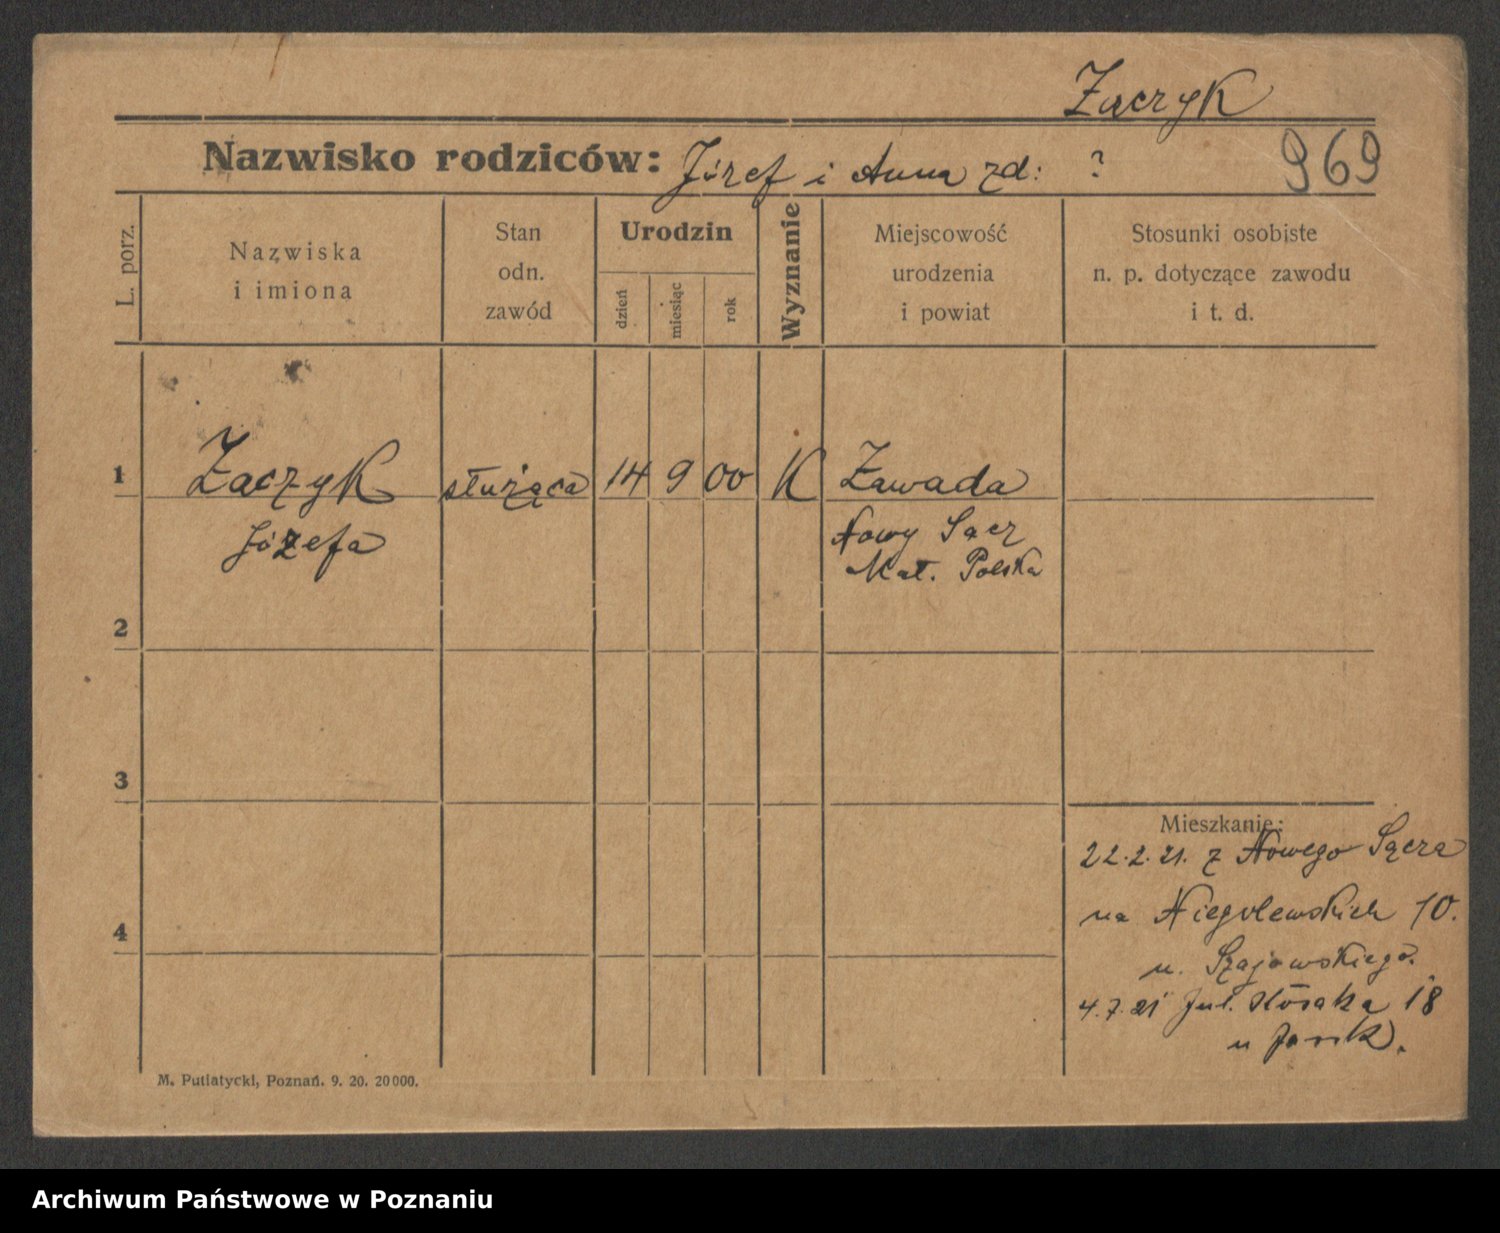 Zączyk
Nazwisko rodziców: Józef i Anna zd: ?
969
L. porz.
Nazwiska
i imiona
Stan
odn.
zawód
Urodzin
dzień
miesiąc
rok
Wyznanie
Miejscowość
urodzenia
i powiat
Stosunki osobiste
n. p. dotyczące zawodu
i t. d.
1 Zączyk służąca 14 9 00 K Zawada
Józefa
Nowy Sącz
Mał. Polska
2
3
4
Mieszkanie:
22.2.21. z Nowego Sącza
na Niegolewskich 10.
u. Szajowskiego.
4.7.21 Jul. Kosaka 18
u
M. Putiatycki, Poznań. 9. 20. 20000.
Archiwum Państwowe w Poznaniu